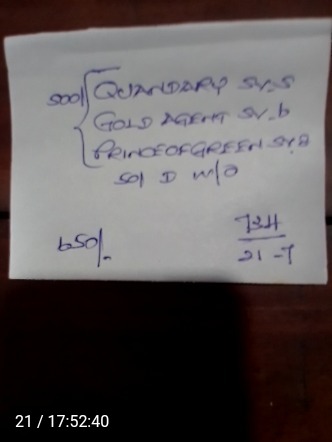 500/ { QUANDARY SV.5
GOLD AGENT SV.6
PRINCEOFGREEN SV.2
50/ D W/O
650/.
734
21-7
21 / 17:52:40